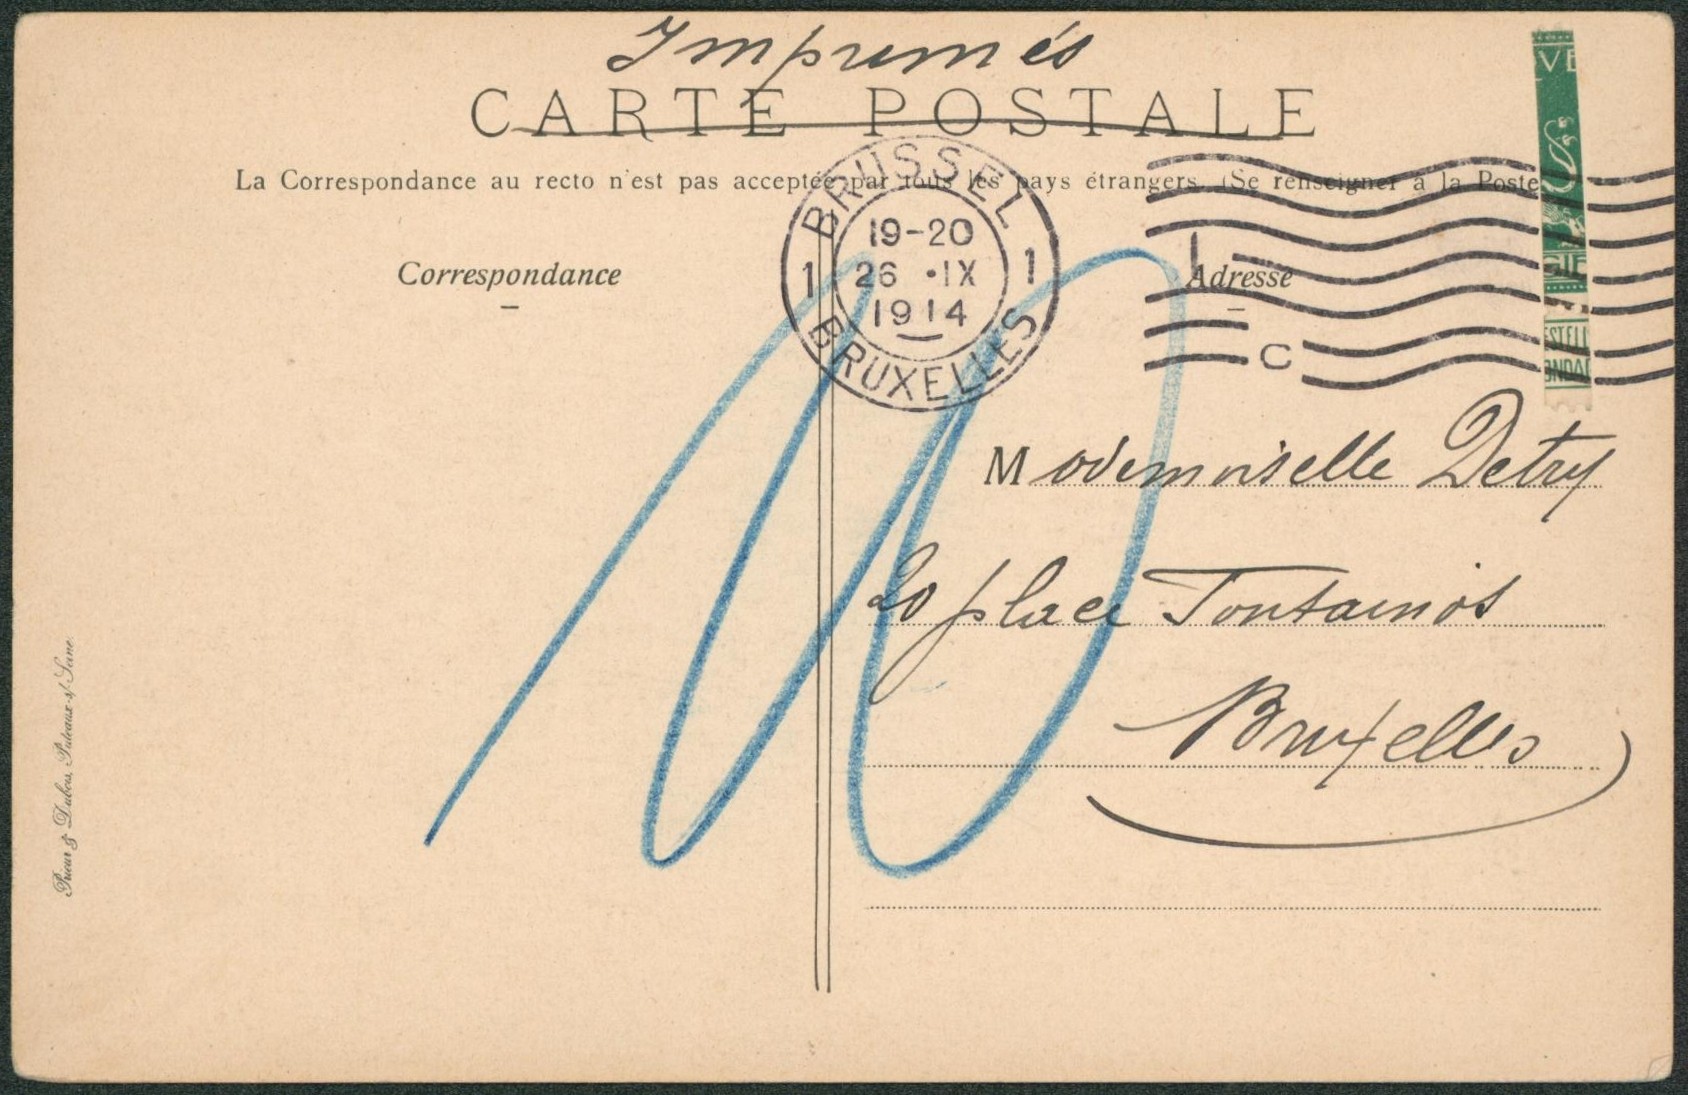 Imprimés
CARTE POSTALE
La Correspondance au recto n'est pas acceptée par tous les pays étrangers (Se renseigner à la Poste
BRUSSEL
19-20
1 26 ·IX 1
1914
BRUXELLES
C
VE
GIE
ESTELL
ONDA
Correspondance
Adresse
10
Mademoiselle Detry
20 place Fontainas
Bruxelles
Prieur & Dubois, Puteaux s/ Seine